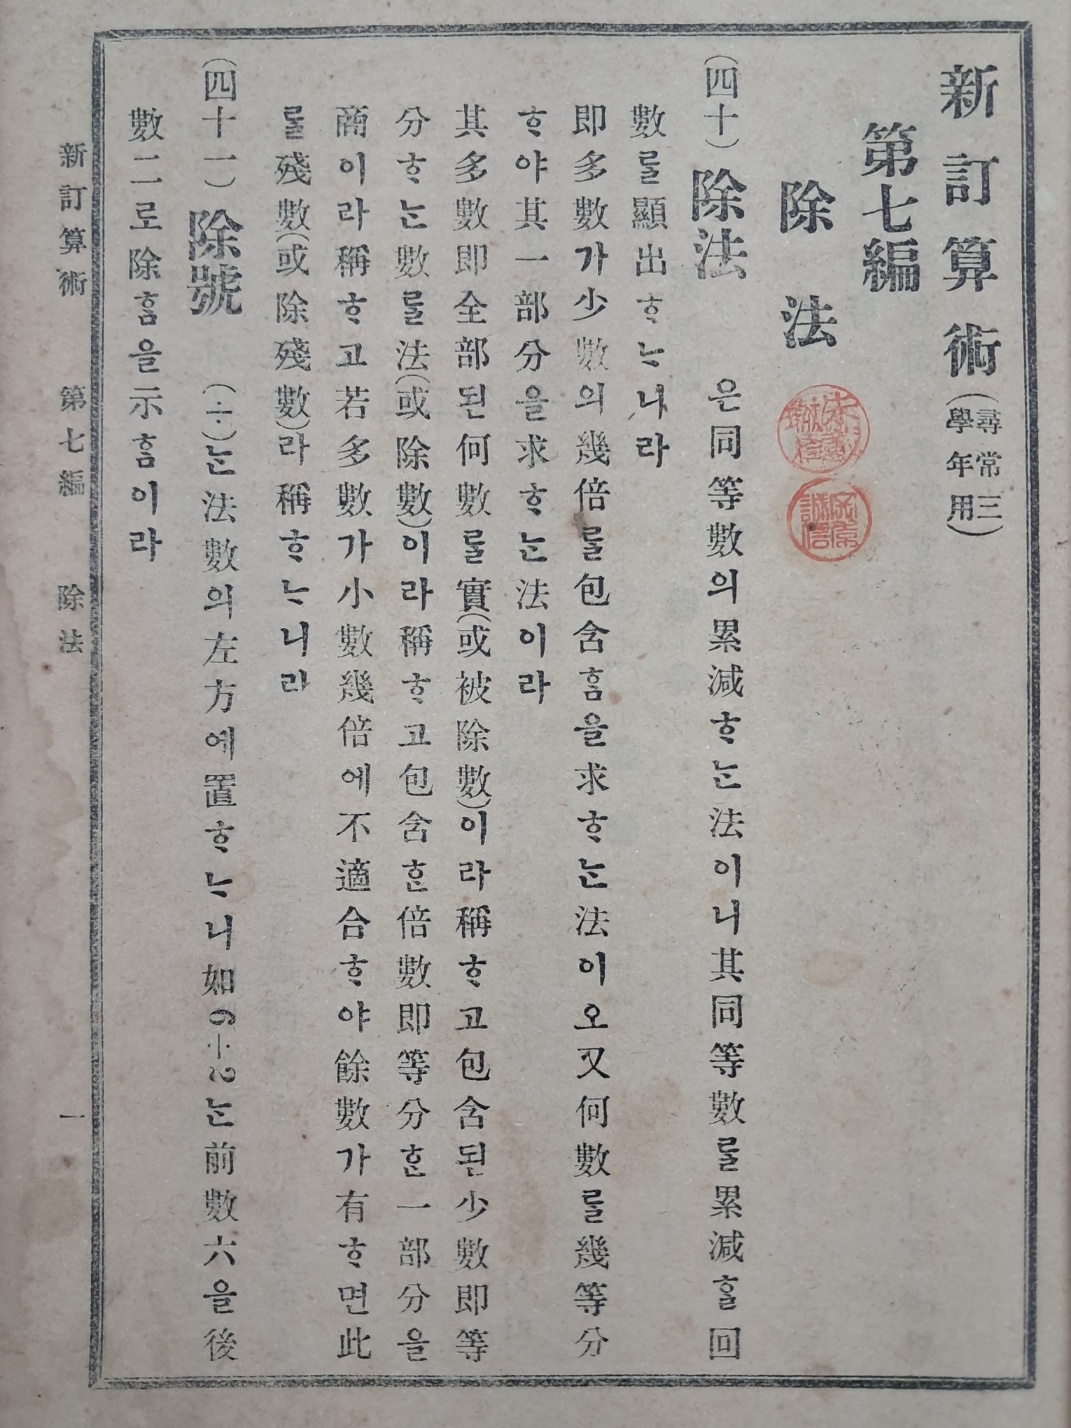 新訂算術(尋常三學年用)
第七編
除法
(四十)除法 은同等數의累減ᄒᆞᄂᆞᆫ法이니其同等數ᄅᆞᆯ累減ᄒᆞᆯ回
數ᄅᆞᆯ顯出ᄒᆞᄂᆞ니라
即多數가少數의幾倍ᄅᆞᆯ包含ᄒᆞᆷ을求ᄒᆞᄂᆞᆫ法이오又何數ᄅᆞᆯ幾等分
ᄒᆞ야其一部分을求ᄒᆞᄂᆞᆫ法이라
其多數即全部된何數ᄅᆞᆯ實(或被除數)이라稱ᄒᆞ고包含된少數即等
分ᄒᆞᄂᆞᆫ數ᄅᆞᆯ法(或除數)이라稱ᄒᆞ고包含ᄒᆞᆫ倍數即等分ᄒᆞᆫ一部分을
商이라稱ᄒᆞ고若多數가小數幾倍에不適合ᄒᆞ야餘數가有ᄒᆞ면此
ᄅᆞᆯ殘數(或除殘數)라稱ᄒᆞᄂᆞ니라
(四十一)除號 (÷)ᄂᆞᆫ法數의左方에置ᄒᆞᄂᆞ니如6÷2ᄂᆞᆫ前數六을後
數二로除ᄒᆞᆷ을示ᄒᆞᆷ이라
新訂算術 第七編 除法 一